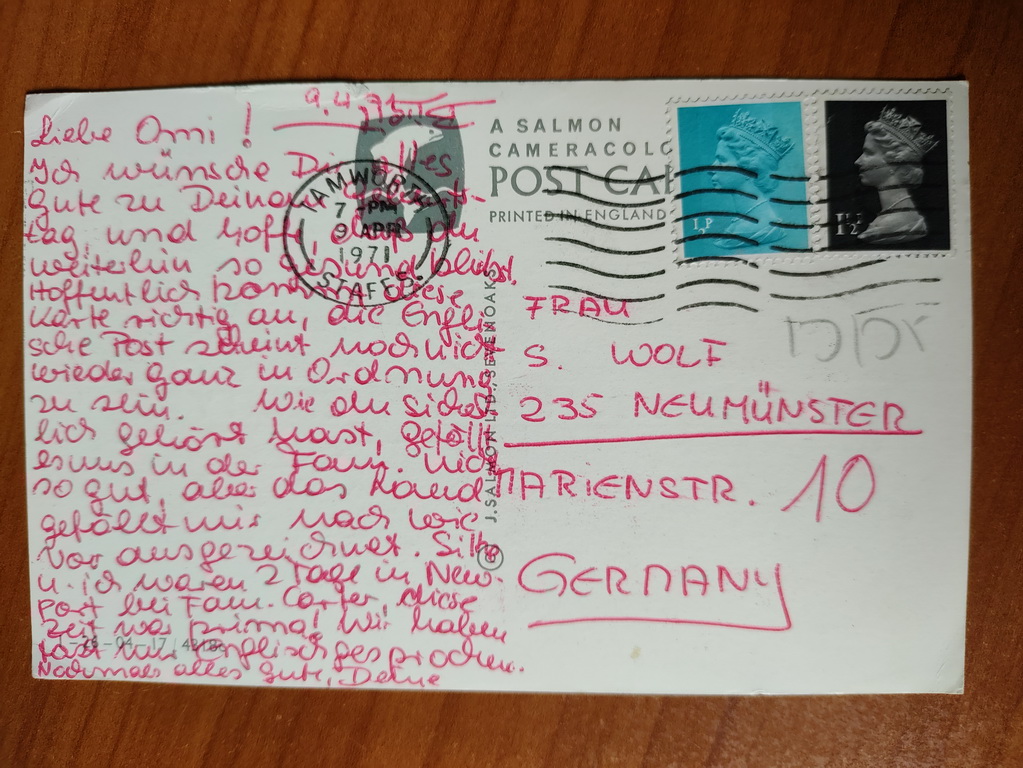 9.4.71
Liebe Omi !
Ich wünsche Dir alles
gute zu Deinem
tag, und hoffe, daß du
weiterhin so gesund bleibst!
Hoffentlich kommt diese
Karte richtig an, die Engli-
sche Post scheint noch nicht
wieder ganz in Ordnung
zu sein. Wie du sicher-
lich gehört hast, gefällt
es uns in der Fam. nicht
so gut, aber das Land
gefällt mir nach wie
vor ausgezeichnet. Silke
u. ich waren 2 Tage in New-
port bei Fam. Carter, diese
Zeit war prima! Wir haben
fast nur Englisch gesprochen.
Nochmals alles Gute, Deine
TAMWORTH
7 - PM
9 APR
1971
STAFFS.
A SALMON
CAMERACOLO
POST CAR
PRINTED IN ENGLAND
J. SALMON LTD., SEVENOAKS
©
½P
1½P
FRAU
S. WOLF
235 NEUMÜNSTER
MARIENSTR. 10
GERMANY